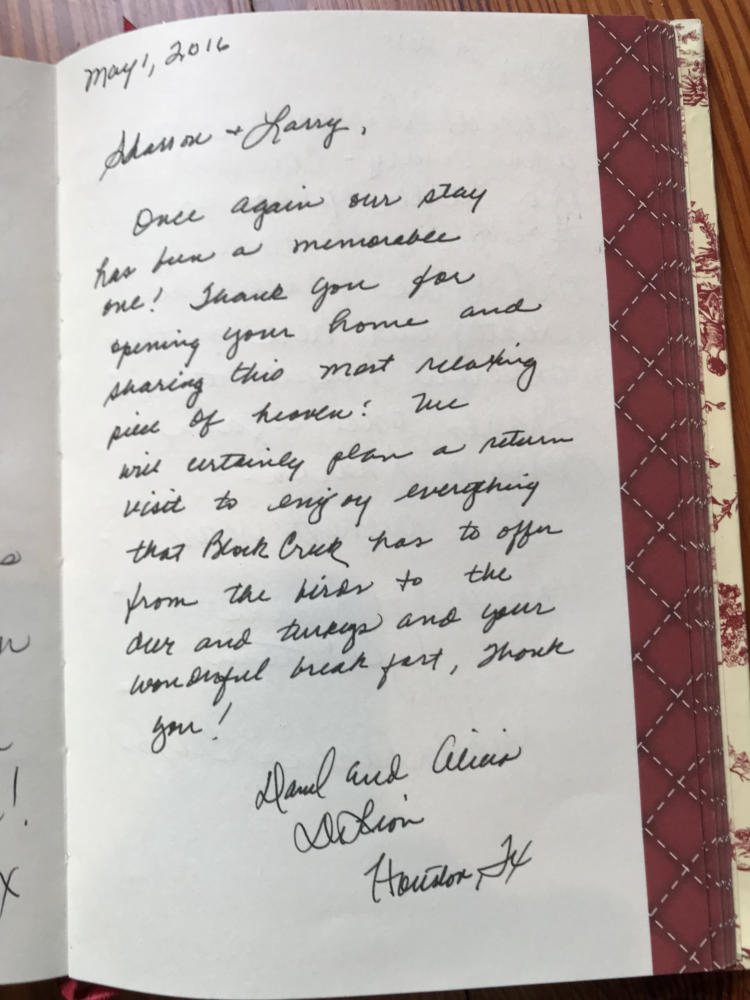 May 1, 2016
Sharron + Larry,
Once again our stay
has been a memorable
one! Thank you for
opening your home and
sharing this most relaxing
piece of heaven! We
will certainly plan a return
visit to enjoy everything
that Block Creek has to offer
from the birds to the
deer and turkeys and your
wonderful breakfast, Thank
you!
and Alicia
DeLeon
Houston, TX